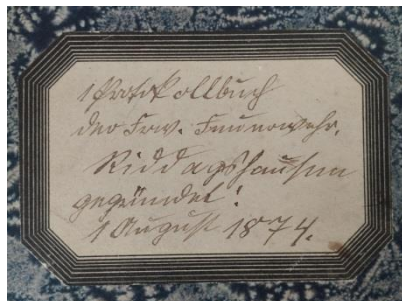 Protokollbuch
der Frw. Feuerwehr.
Riddagshausen
gegründet:
1 August 1874.